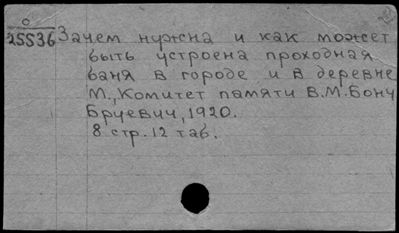 О
25536 Зачем нужна и как может
быть устроена проходная
баня в городе и в деревне
М., Комитет памяти В.М. Бонч
Бруевич, 1920.
8 стр. 12 таб.